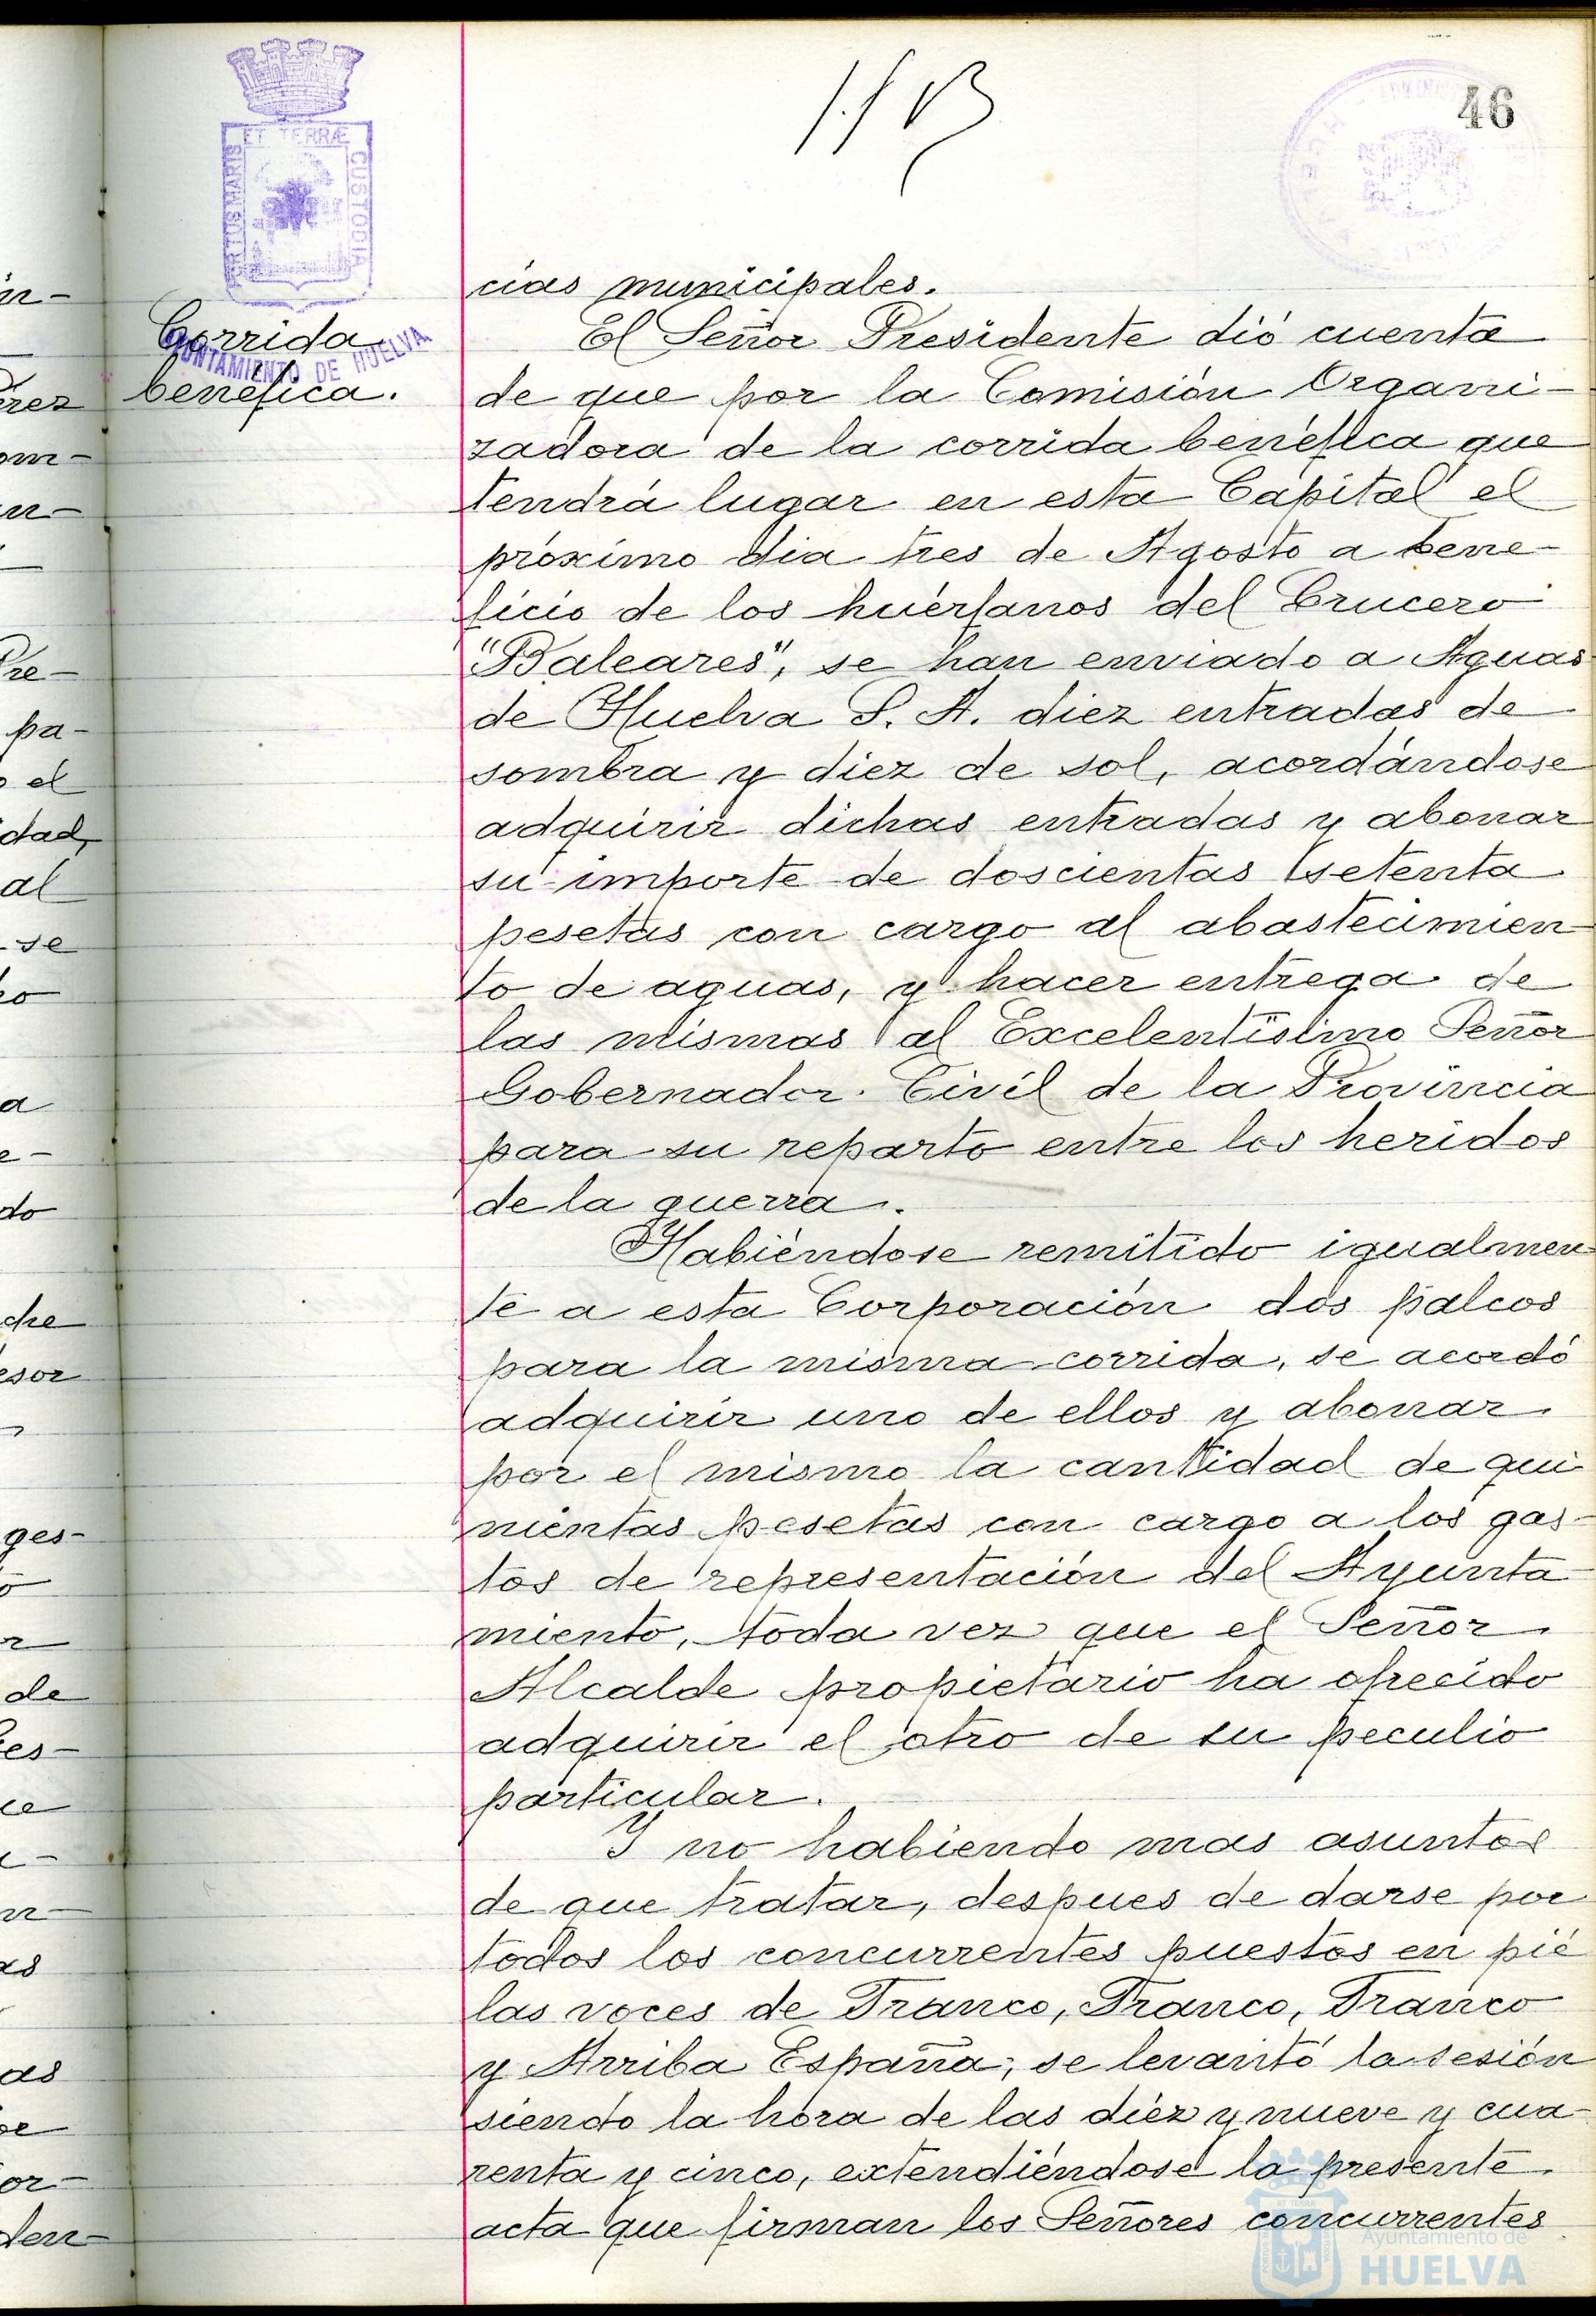 46
ET TERRÆ
CUSTODIA
AYUNTAMIENTO DE HUELVA
Corrida
benéfica.
cias municipales.
El Señor Presidente dió cuenta
de que por la Comisión Organi-
zadora de la corrida benéfica que
tendrá lugar en esta Capital el
próximo dia tres de Agosto a bene-
ficio de los huérfanos del Crucero
"Baleares", se han enviado a Aguas
de Huelva S. A. diez entradas de
sombra y diez de sol, acordándose
adquirir dichas entradas y abonar
su importe de doscientas setenta
pesetas con cargo al abastecimien-
to de aguas, y hacer entrega de
las mismas al Excelentisimo Señor
Gobernador Civil de la Provincia
para su reparto entre los heridos
de la guerra.
Habiéndose remitido igualmen-
te a esta Corporación dos palcos
para la misma corrida, se acordó
adquirir uno de ellos y abonar
por el mismo la cantidad de qui-
nientas pesetas con cargo a los gas-
tos de representación del Ayunta-
miento, toda vez que el Señor
Alcalde propietario ha ofrecido
adquirir el otro de su peculio
particular.
Y no habiendo mas asuntos
de que tratar, despues de darse por
todos los concurrentes puestos en pié
las voces de Franco, Franco, Franco
y Arriba España, se levantó la sesión
siendo la hora de las diez y nueve y cua-
renta y cinco, extendiéndose la presente
acta que firman los Señores concurrentes
Ayuntamiento de
HUELVA